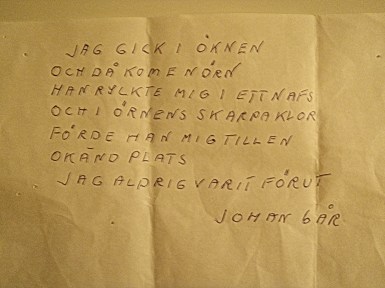 JAG GICK I ÖKNEN
OCH DÅ KOM EN ÖRN
HAN RYCKTE MIG I ETT NAFS
OCH I ÖRNENS SKARPA KLOR
FÖRDE HAN MIG TILL EN
OKÄND PLATS
JAG ALDRIG VARIT FÖRUT
JOHAN 6 ÅR